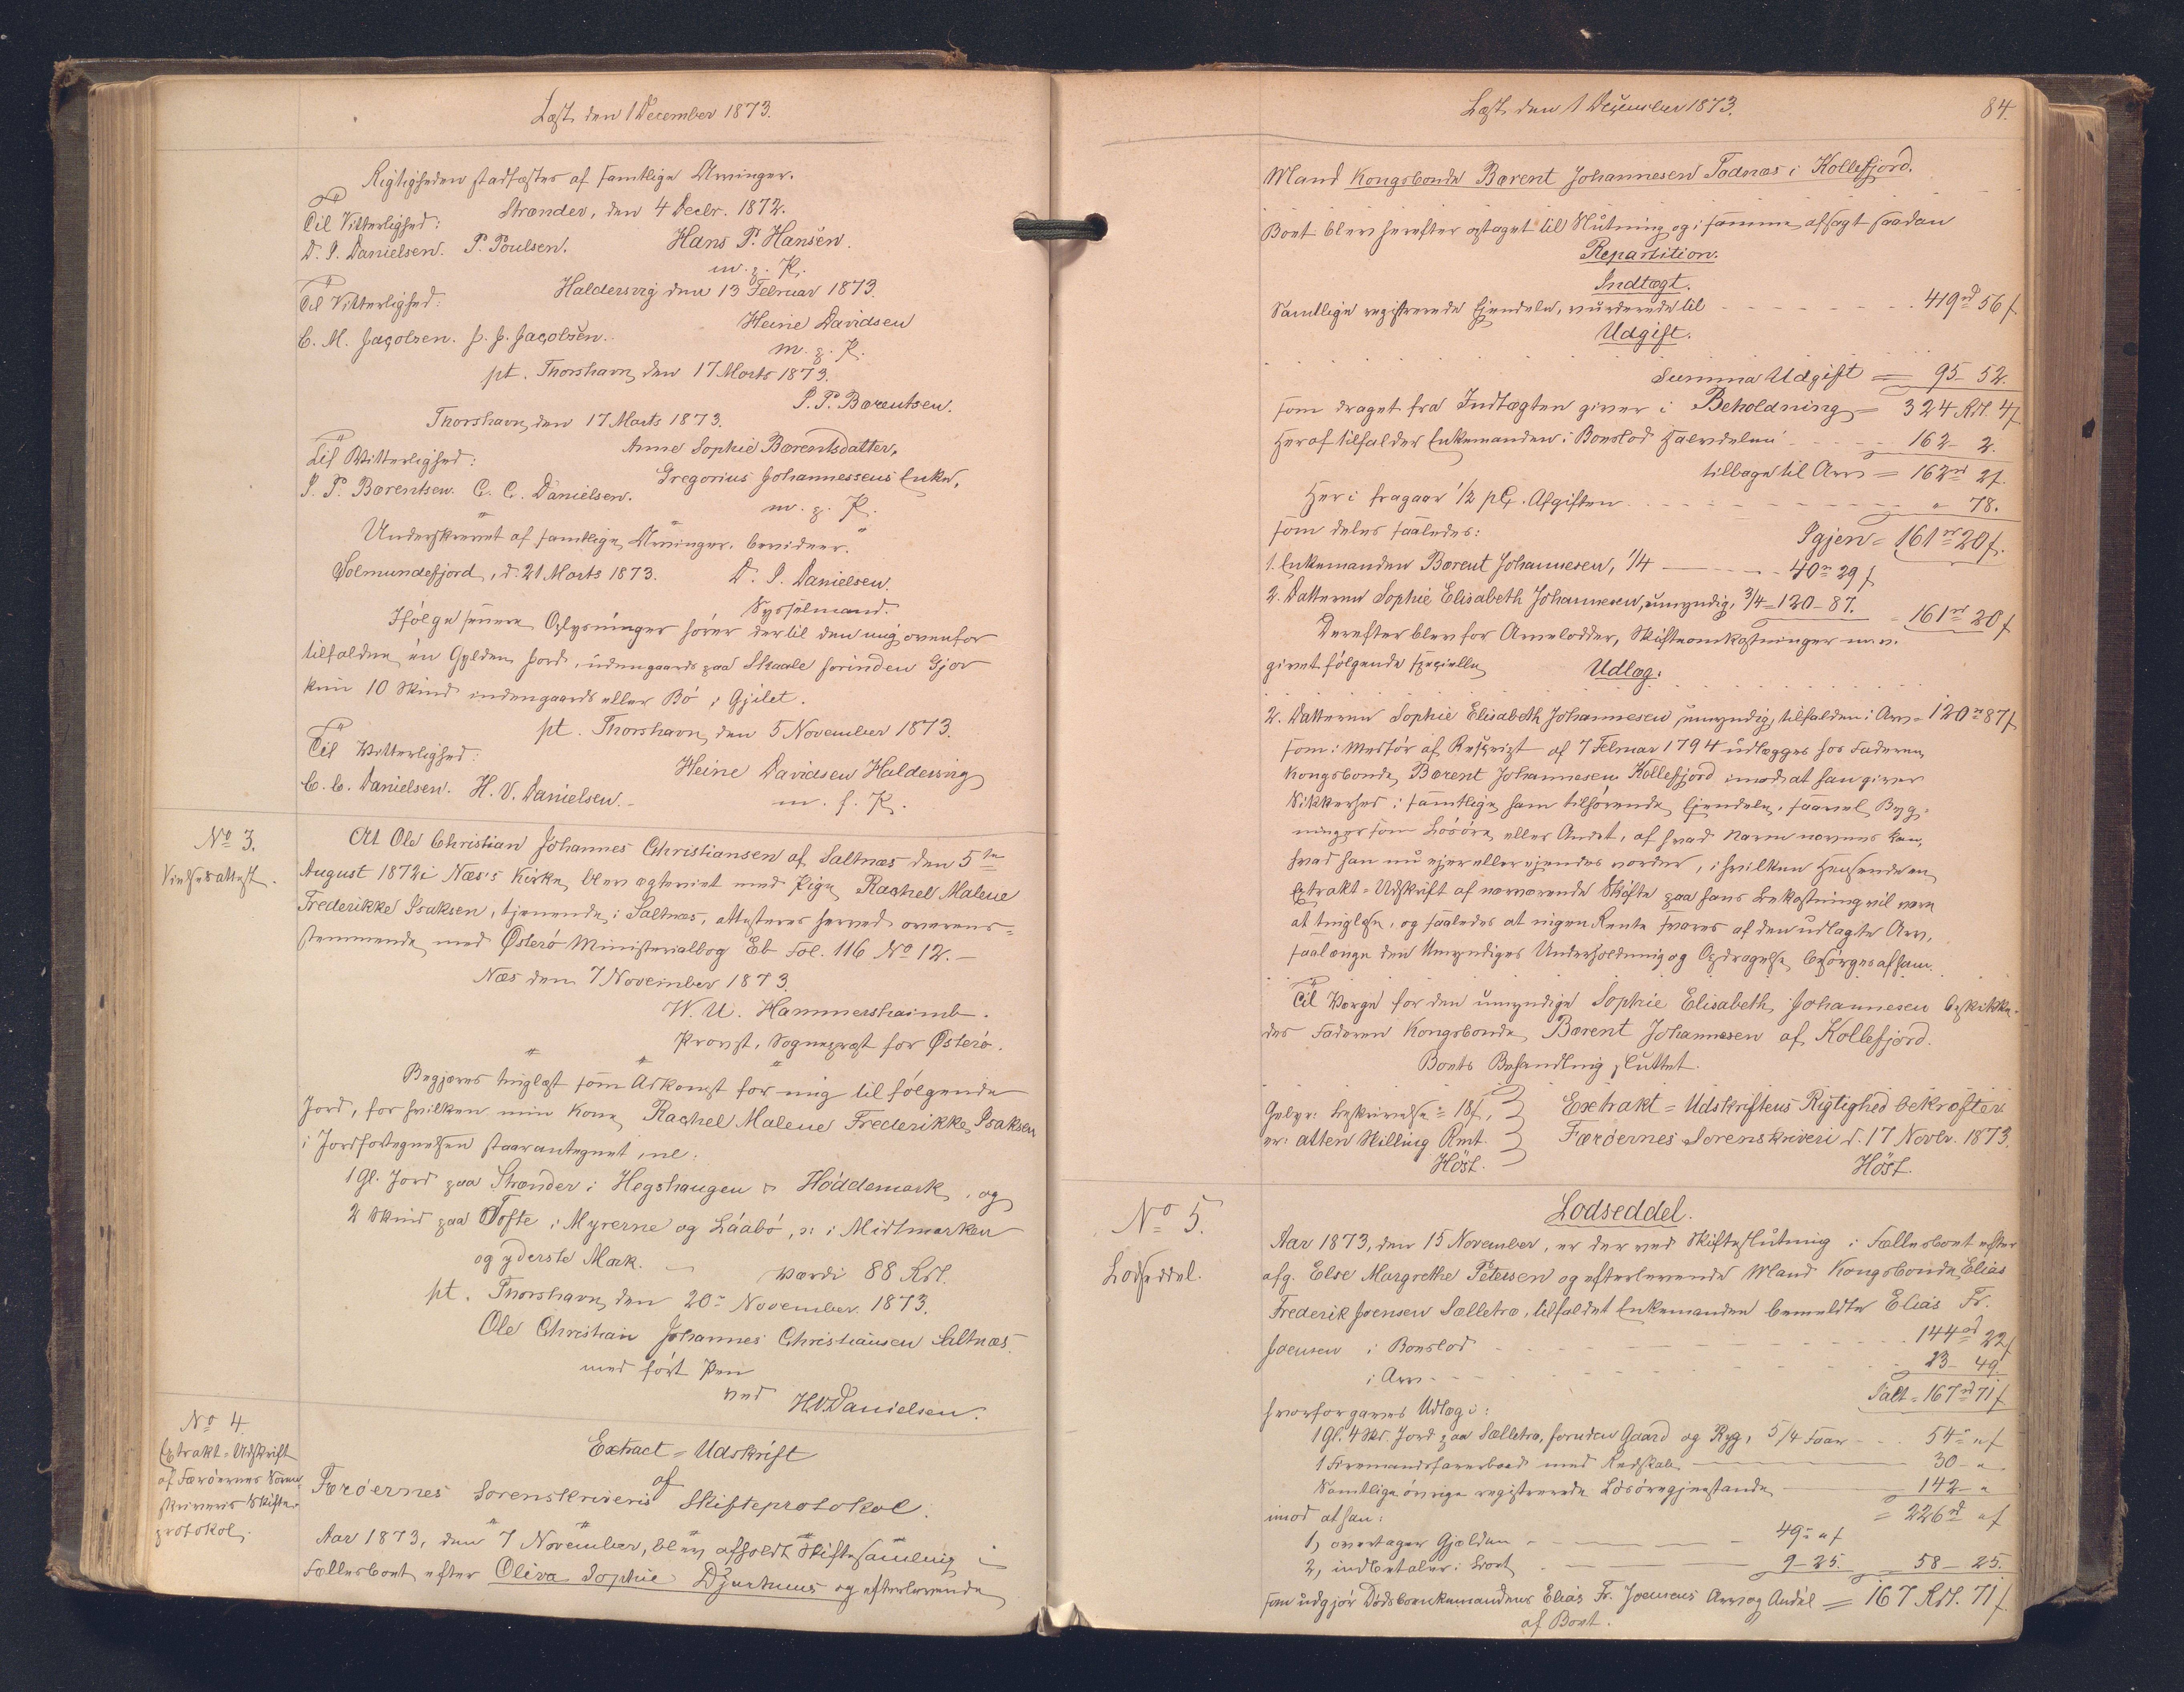 Læst den 1 December 1873.
Rigtigheden stadfæstes af samtlige Arvinger.
Strænder, den 4 Decbr. 1872.
Til Vitterlighed:
D. I. Danielsen. P. Poulsen. Hans P. Hansen.
m. p. P.
Haldersvig den 13 Februar 1873.
Til Vitterlighed:
Heine Davidsen
C. M. Jacobsen. J. J. Jacobsen.
m. p. P.
pt. Thorshavn, den 17 Marts 1873.
P. P. Bærentsen.
Thorshavn, den 17 Marts 1873.
Anne Sophie Bærentsdatter,
Til Vitterlighed:
Gregorius Johannessens Enke,
P. P. Bærentsen. C. C. Danielsen.
m. p. P.
Underskrevet af samtlige Arvinger, bevidner.
Solmundefjord, d. 21 Marts 1873. D. I. Danielsen.
Sysselmand.
Ifølge senere Oplysninger hører der til den mig ovenfor
tilfaldne en Gylden Jord, udengaards paa Skaale forinden Gjov
kun 10 Skind indengaards eller Bö i Gjilet.
pt. Thorshavn, den 5 November 1873.
Til Vitterlighed:
Heine Davidsen Haldersvig
C. C. Danielsen. H. V. Danielsen.
m. f. P.
No 3.
Vielsesattest.
At Ole Christian Johannes Christiansen af Saltnæs den 5te
August 1872 i Næs's Kirke, blev ægteviet med Pige Rachel Malene
Frederikke Isaksen, tjenende i Saltnæs, attesteres herved overens=
stemmende med Østerö Ministerialbog Eb Fol. 116 No 12.
Næs den 7 November 1873.
W. U. Hammershaimb.
Provst, Sognepræst for Østerö.
Begjæres thinglæst som Adkomst for mig til følgende
Jord, for hvilken min Kone Rachel Malene Frederikke Isaksen
i Jordfortegnelsen staar antegnet, nl:
1 Gl. Jord paa Strænder i Hegshaugen & Höddemark, og
2 Skind paa Tofte i Myrerne og Láabö, ɔ: i Midtmarken
og yderste Mark. Værdi 88 Rdl.
pt. Thorshavn, den 20 November 1873.
Ole Christian Johannes Christiansen Saltnæs.
med ført Pen
ved H. V. Danielsen.
No 4.
Extrakt=Udskrift
af Færöernes Soren=
skriveris Skifte=
protokol.
Extract=Udskrift
af
Færöernes Sorenskriveris Skifteprotokol.
Aar 1873, den 7 November, blev afholdt Skiftesamling i
Fællesboet efter Oliva Sophie Djurhuus og efterlevende
Læst den 1 December 1873.
84.
Mand Kongsbonde Bærent Johannesen Todnæs i Kollefjord.
Boet blev herefter optaget til Slutning og i samme afsagt saadan
Repartition.
Indtægt.
Samtlige registrerede Ejendele, vurderede til 419 rd 56 f
Udgift.
Summa Udgift = 95 - 52.
som draget fra Indtægten giver i Beholdning = 324 Rdl. 4 f
Heraf tilfalder Enkemanden i Boeslod Halvdelen 162 - 2.
tilbage til Arv = 162 rd 2 f.
Heri fragaar 1/2 pCt. Afgiften " 78.
som deles saaledes: Igjen = 161 rd 20 f.
1. Enkemanden Bærent Johannesen, 1/4 40 rd 29 f
2. Datteren Sophie Elisabeth Johannesen, umyndig, 3/4 = 120 - 87. = 161 rd 20 f
Derefter blev for Arvelodder, Skifteomkostninger m. v.
givet følgende specielle Udlæg:
2. Datteren Sophie Elisabeth Johannesen, umyndig, tilfalden i Arv = 120 rd 87 f
som i Medfør af Rescript af 7 Februar 1794 udlægges hos Faderen
Kongsbonde Bærent Johannesen Kollefjord imod at han giver
Sikkerhed i samtlige ham tilhørende Ejendele, saavel Byg=
ninger som Lösöre eller Andet, af hvad Navn nævnes kan,
hvad han nu ejer eller ejendes vorder, i hvilken Henseende en
Extrakt=Udskrift af nærværende Skifte paa hans Bekostning vil være
at tinglæse, og saaledes at ingen Rente svares af den udlagte Arv,
saalænge den Umyndiges Underholdning og Opdragelse besørges af ham.
Til Værge for den umyndige Sophie Elisabeth Johannesen beskikke=
des Faderen Kongsbonde Bærent Johannesen af Kollefjord.
Boets Behandling sluttet.
Gebyr: Beskrivelse = 18 f,
er: atten Skilling Rmt.
Höst.
Extrakt=Udskriftens Rigtighed bekræfter
Færöernes Sorenskriveri d. 17 Novbr. 1873.
Höst.
No 5.
Lodseddel.
Lodseddel.
Aar 1873, den 15 November, er der ved Skifteslutning i Fællesboet efter
afg. Else Margrethe Petersen og efterlevende Mand Kongsbonde Elias
Frederik Joensen Sælletræ, tilfaldet Enkemanden bemeldte Elias Fr.
Joensen i Boeslod 144 rd 22 f
i Arv 23 - 49.
Ialt = 167 rd 71 f
hvorfor gaves Udlæg i:
1 Gl. 4 Sk. Jord paa Sælletræ, foruden Gaard og Ryg, 5/4 Faar 54 " f
1 Firemandsfarerbaad med Redskab 30 - "
Samtlige øvrige registrerede Lösöregjenstande 142 - "
imod at han: = 226 rd " f
1, overtager Gjælden 49 " f
2, indbetaler i Boet 9 - 25. 58 - 25.
som udgjör Dödsboenkemandens Elias Fr. Joensens Arv og Andel = 167 Rdl. 71 f
af Boet.